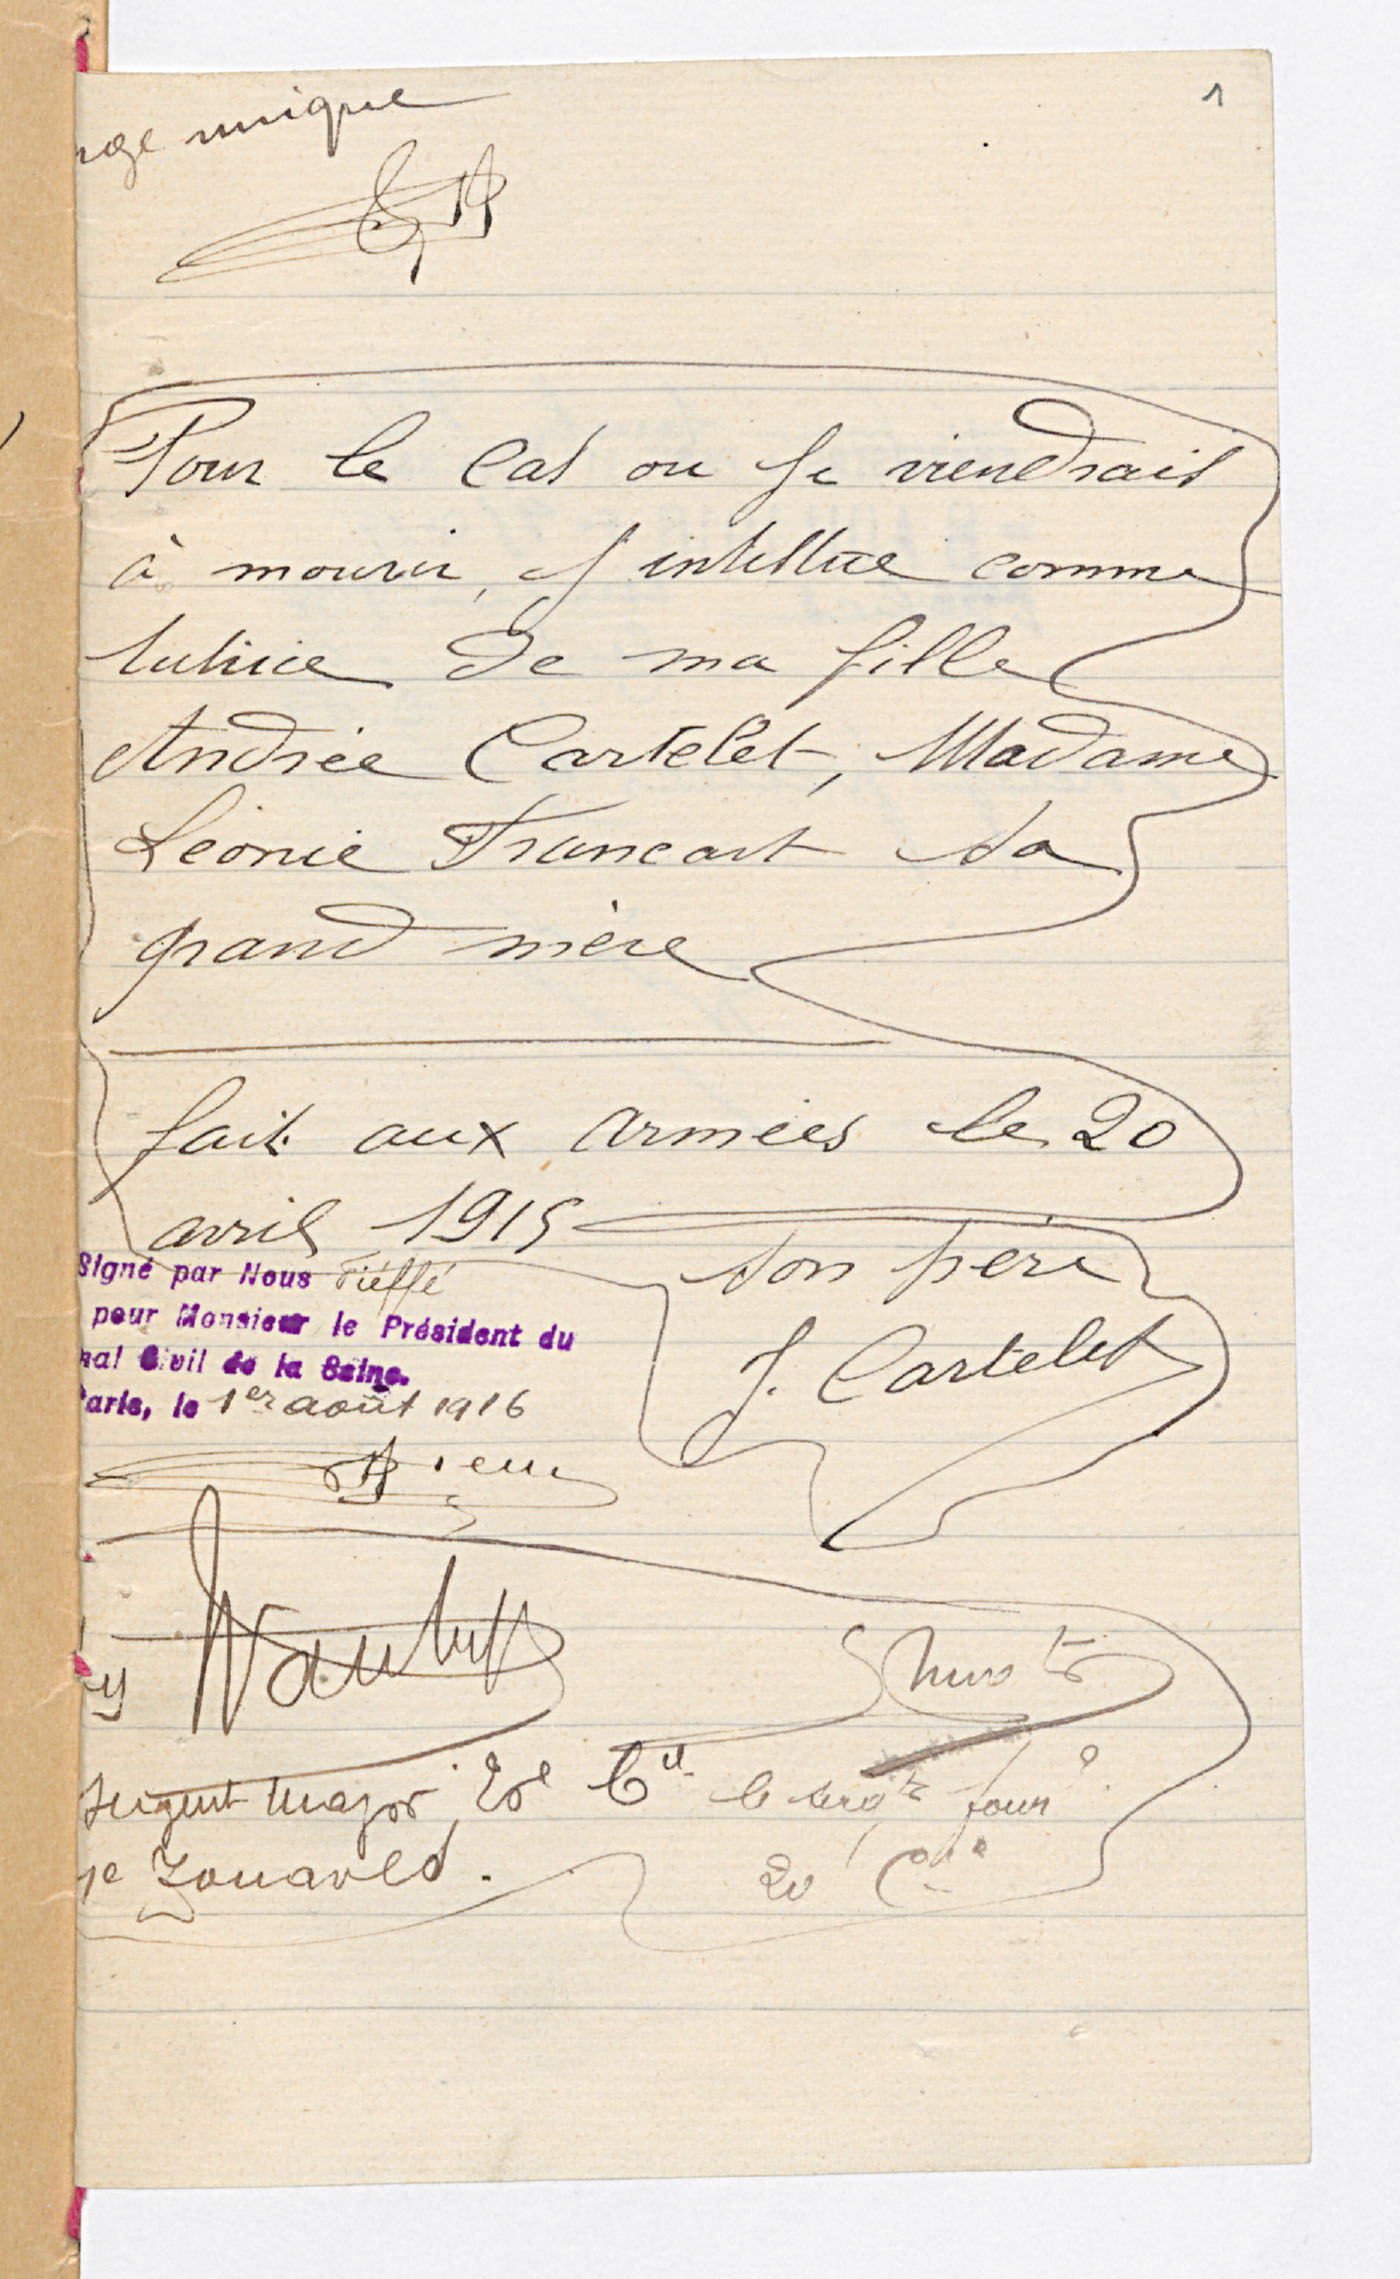 1
age unique
Pour le cas ou je viendrais
à mourir, j'intestitue comme
tutrice de ma fille
Andrée Cartelet, Madame
Léonie Francart sa
grand mère
fait aux armées le 20
avril 1915
son père
J. Cartelet
Signé par Nous Tieffé
pour Monsieur le Président du
nal Civil de la Seine.
Paris, le 1er août 1916
sergent major 20e Cie
le sergt four
e Zouaves.
20 Cie